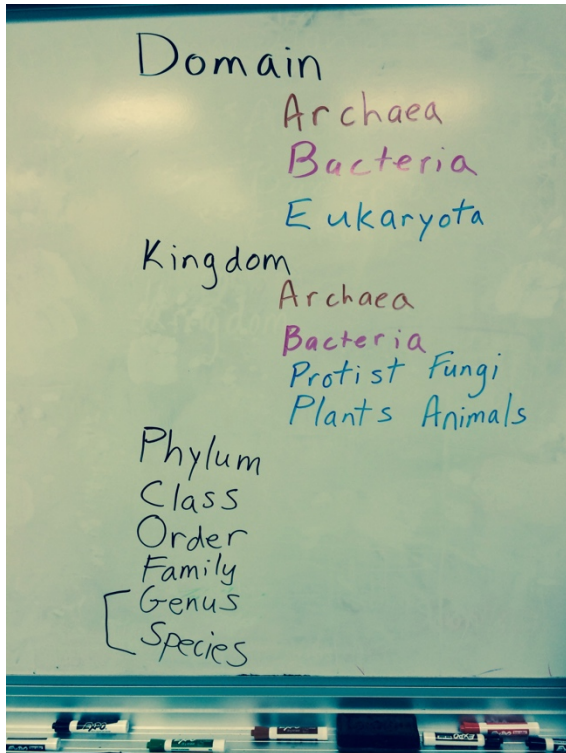 Domain
Archaea
Bacteria
Eukaryota
Kingdom
Archaea
Bacteria
Protist Fungi
Plants Animals
Phylum
Class
Order
Family
Genus
Species
EXPO
EXPO